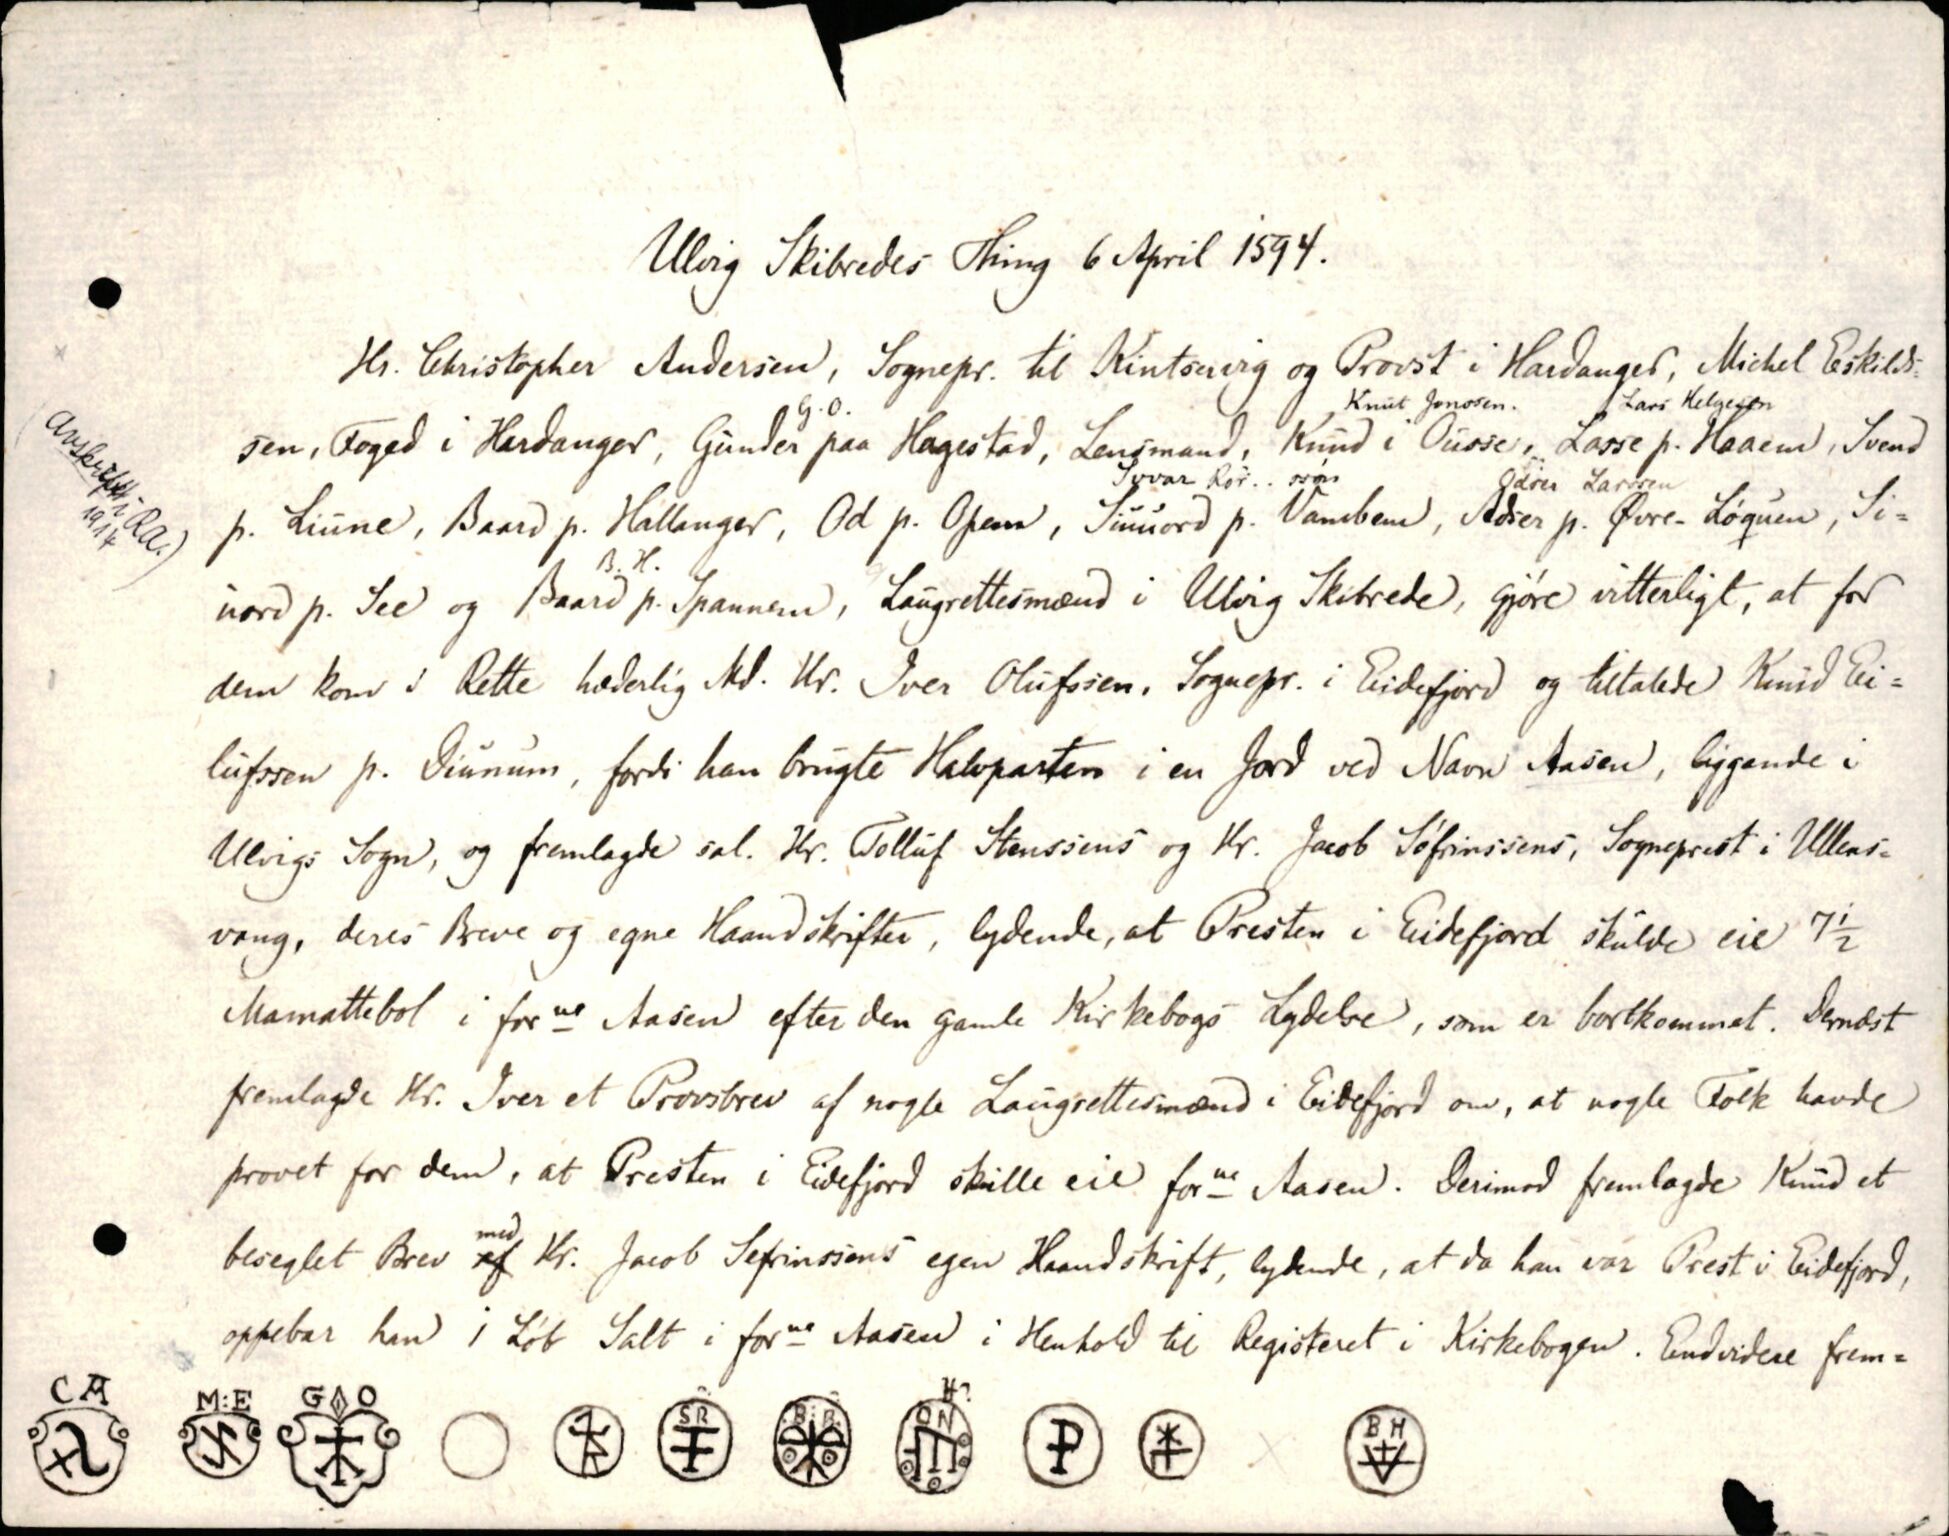 Ulvig Skibredes Thing 6 April 1594.
Hr. Christopher Andersen, Sognepr. til Kintservig og Provst i Hardanger, Michel Eskilds-
G.O. Knut Jonssen. Lars Helgesen
sen, Foged i Hardanger, Gunder paa Hagestad, Lensmand, Knud i Ousse, Lasse p. Haaem, Svend
Syvar Rør.. ssøn Odser Larssen
p. Liune, Baard p. Hallanger, Od p. Opem, Siuuord p. Vambem, Adser p. Øvre-Løquen, Si=
B.H.
uord p. See og Baard p. Spannem, Laugrettesmænd i Ulvig Skibrede, gjøre vitterligt, at for
dem kom i Rette hæderlig Md. Hr. Iver Olufssen, Sognepr. i Eidefjord og tiltalede Knud Ei=
lufssen p. Diunum, fordi han brugte Halvparten i en Jord ved Navn Aasen, liggende i
Ulvigs Sogn, og fremlagde sal. Hr. Tolluf Stenssens og Hr. Jacob Søfrinssens, Sogneprest i Ullens=
vang, deres Breve og egne Haandskrifter, lydende, at Presten i Eidefjord skulde eie 7½
Mamattebol i forne Aasen efter den gamle Kirkebogs Lydelse, som er bortkommet. Dernæst
fremlagde Hr. Iver et Provsbrev af nogle Laugrettesmænd i Eidefjord om, at nogle Folk havde
provet for dem, at Presten i Eidefjord skulle eie forne Aasen. Derimod fremlagde Knud et
med
beseglet Brev af Hr. Jacob Sefrinssens egen Haandskrift, lydende, at da han var Prest i Eidefjord,
oppebar han 1 Løb Salt i forne Aasen i Henhold til Registeret i Kirkebogen. Endvidere frem=
(Avskrift i RA.)
1914
CA M:E G O SR B:B. ON H? BH